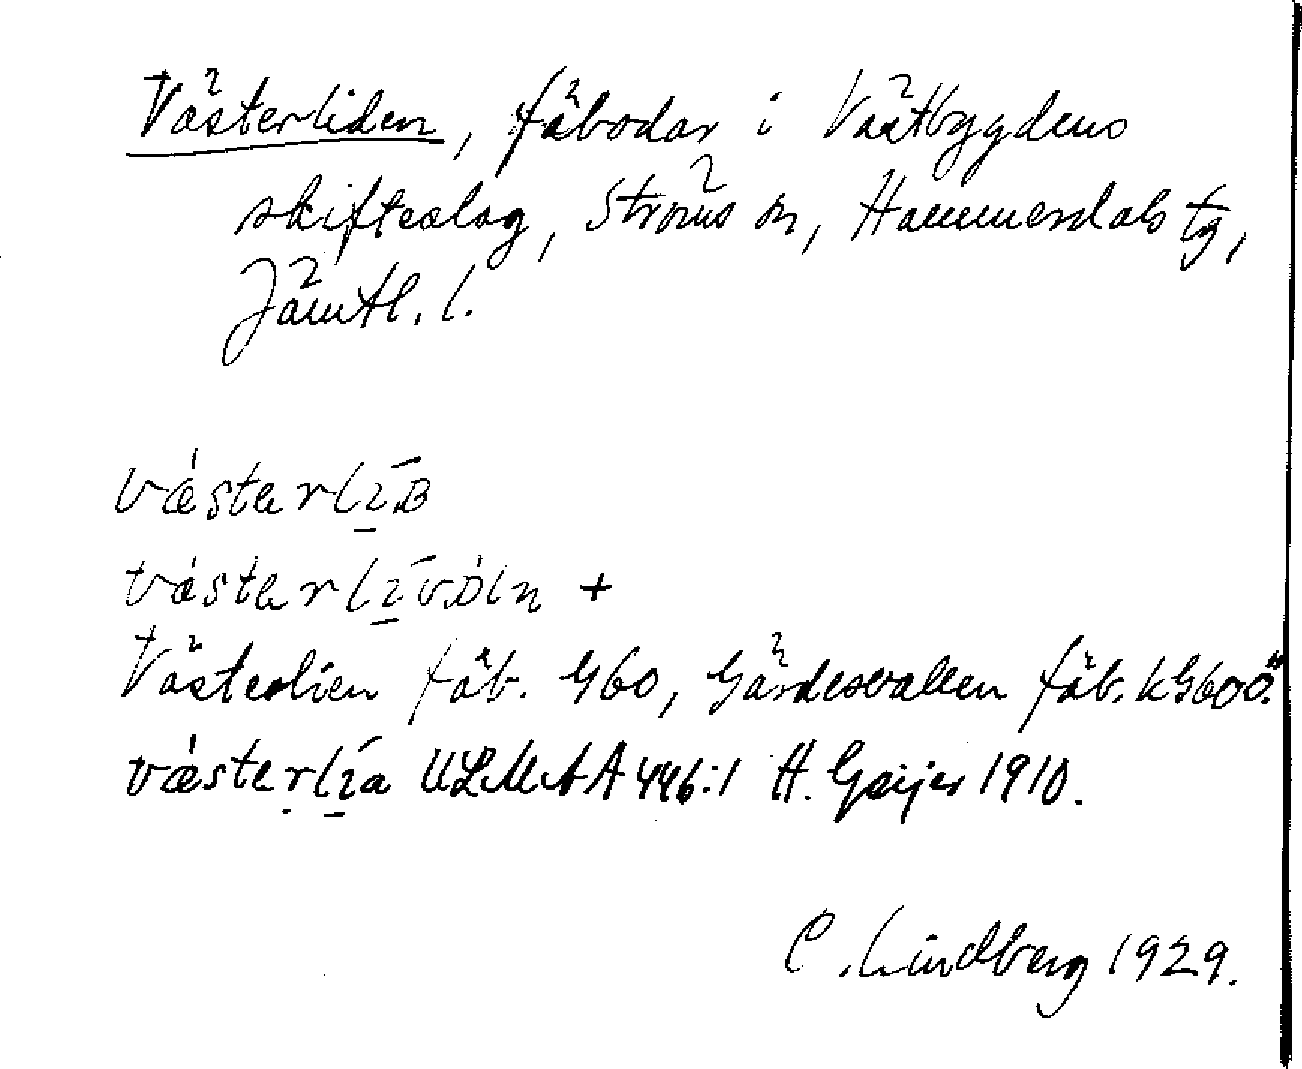 Västerliden, fäbodar i Västbygdens
skifteslag, Ströms sn, Hammerdals tg,
Jämtl. l.
vǽstɐrlīʙ
vǽstɐrlīvɒ́ln +
Västerlien fäb. G60, Gärdesvallen fäb. LG60Ö.
vǽstɐrlīa ULMA A 446:1 H. Geijer 1910.
C. Lindberg 1929.